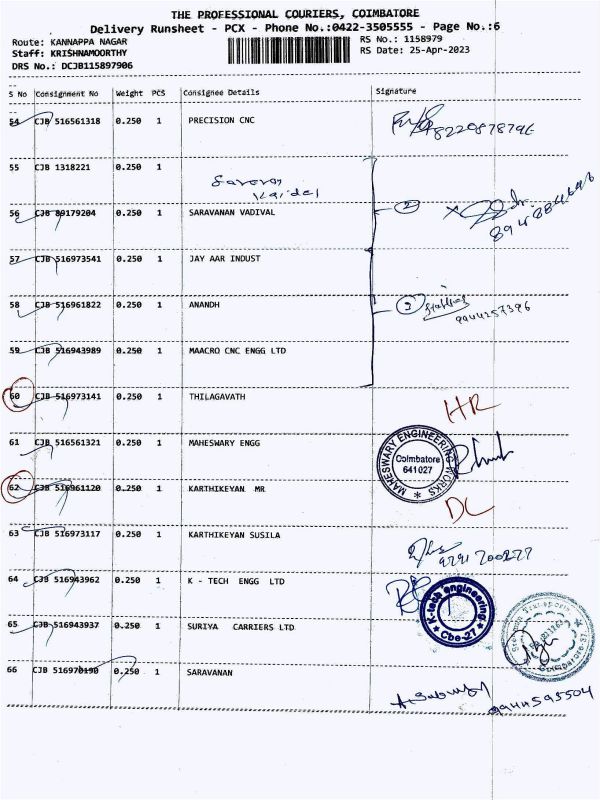 THE PROFESSIONAL COURIERS, COIMBATORE
Delivery Runsheet - PCX - Phone No.:0422-3505555 - Page No.:6
Route: KANNAPPA NAGAR RS No.: 1158979
Staff: KRISHNAMOORTHY RS Date: 25-Apr-2023
DRS No.: DCJB115897906
S No Consignment No Weight PCS Consignee Details Signature
54 CJB 516561318 0.250 1 PRECISION CNC 8220878796
55 CJB 1318221 0.250 1
56 CJB 89179204 0.250 1 SARAVANAN VADIVAL 2
57 CJB 516973541 0.250 1 JAY AAR INDUST
58 CJB 516961822 0.250 1 ANANDH 9944257396
59 CJB 516943989 0.250 1 MAACRO CNC ENGG LTD
60 CJB 516973141 0.250 1 THILAGAVATH HR
61 CJB 516561321 0.250 1 MAHESWARY ENGG
MAHESWARY ENGINEERING WORKS
Coimbatore
641027
62 CJB 516961120 0.250 1 KARTHIKEYAN MR DC
63 CJB 516973117 0.250 1 KARTHIKEYAN SUSILA
64 CJB 516943962 0.250 1 K - TECH ENGG LTD
K-tech engineering
Cbe-27
65 CJB 516943937 0.250 1 SURIYA CARRIERS LTD
66 CJB 516970190 0.250 1 SARAVANAN 9944595504